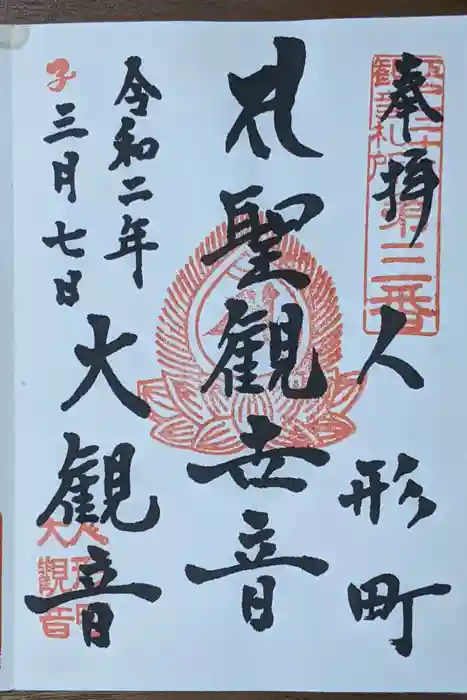 奉拝
人形町
聖観世音
令和二年
子三月七日
大観音
第三番
大觀音